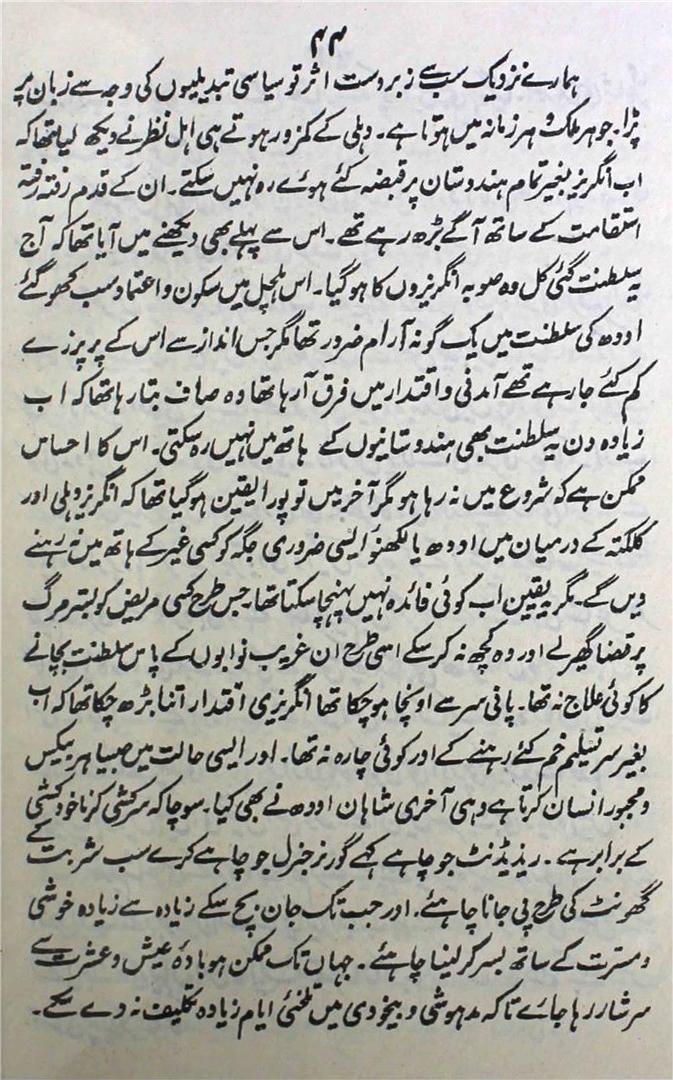 ۴۴
ہمارے نزدیک سب سے زبردست اثر تو سیاسی تبدیلیوں کی وجہ سے زبان پر
پڑا۔ جو ہر ملک و ہر زمانہ میں ہوتا ہے۔ دہلی کے کمزور ہوتے ہی اہل نظر نے دیکھ لیا تھا کہ
اب انگریز بغیر تمام ہندوستان پر قبضہ کئے ہوئے رہ نہیں سکتے۔ ان کے قدم رفتہ رفتہ
استقامت کے ساتھ آگے بڑھ رہے تھے۔ اس سے پہلے بھی دیکھنے میں آیا تھا کہ آج
یہ سلطنت گئی کل وہ صوبہ انگریزوں کا ہو گیا۔ اس ہلچل میں سکون و اعتماد سب کھو گئے
اودھ کی سلطنت میں یک گونہ آرام ضرور تھا مگر جس انداز سے اس کے پر پرزے
کم کئے جا رہے تھے آمدنی و اقتدار میں فرق آ رہا تھا وہ صاف بتا رہا تھا کہ اب
زیادہ دن یہ سلطنت بھی ہندوستانیوں کے ہاتھ میں نہیں رہ سکتی۔ اس کا احساس
ممکن ہے کہ شروع میں نہ رہا ہو مگر آخر میں تو پورا یقین ہو گیا تھا کہ انگریز دہلی اور
کلکتہ کے درمیان میں اودھ یا لکھنؤ ایسی ضروری جگہ کو کسی غیر کے ہاتھ میں نہ رہنے
دیں گے۔ مگر یہ یقین اب کوئی فائدہ نہیں پہنچا سکتا تھا۔ جس طرح کسی مریض کو بستر مرگ
پر قضا گھیر لے اور وہ کچھ نہ کر سکے اسی طرح ان غریب نوابوں کے پاس سلطنت بچانے
کا کوئی علاج نہ تھا۔ پانی سر سے اونچا ہو چکا تھا انگریزی اقتدار اتنا بڑھ چکا تھا کہ اب
بغیر سر تسلیم خم کئے رہنے کے اور کوئی چارہ نہ تھا۔ اور ایسی حالت میں جیسا ہر بیکس
و مجبور انسان کرتا ہے وہی آخری شاہان اودھ نے بھی کیا۔ سوچا کہ سرکشی کرنا خودکشی
کے برابر ہے۔ ریذیڈنٹ جو چاہے کہے گورنر جنرل جو چاہے کرے سب شربت کے
گھونٹ کی طرح پی جانا چاہئے۔ اور جب تک جان بچ سکے زیادہ سے زیادہ خوشی
و مسرت کے ساتھ بسر کر لینا چاہئے۔ جہاں تک ممکن ہو بادۂ عیش و عشرت سے
سرشار رہا جائے تاکہ مدہوشی و بیخودی میں تلخئ ایام زیادہ تکلیف نہ دے سکے۔